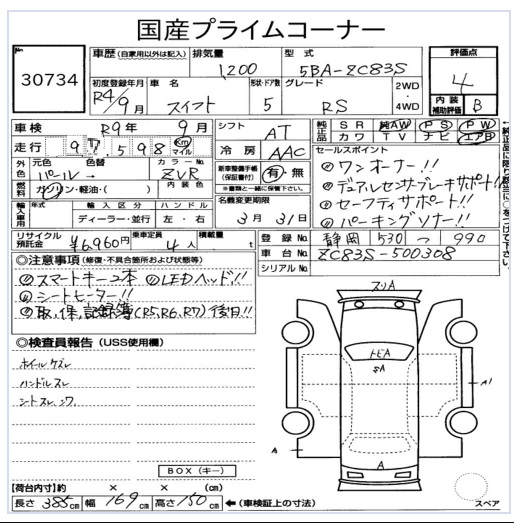 国産プライムコーナー
30734
車歴 (自家用以外は記入) 排気量 型式 評価点
1200 5BA-ZC83S 4
初度登録年月 車名 形状・ドア数 グレード 2WD・4WD 内装補助評価
R4/9月 スイフト 5 RS B
車検 R9年 9月 シフト AT 純正品 SR 純AW PS PW
カワ TV ナビ エアB
走行 97,598 Km マイル 冷房 AAC セールスポイント
外色 元色 色替 カラーNo.
パール→ ZVR 新車整備手帳(保証書付) 有・無
※書類と一緒に保管下さい。
燃料 ガソリン・軽油・( ) 内装色
◎ワンオーナー!!
◎デュアルセンサーブレーキサポート!!
◎セーフティサポート!!
◎パーキングソナー!!
輸入車用 年式 輸入区分 ハンドル 名義変更期限
ディーラー・並行 左・右 3月31日
リサイクル預託金 ¥6,960円 乗車定員 4人 積載量 t
登録No. 静岡 530 つ 990
車台No. ZC83S-500308
シリアルNo.
◎注意事項 (修復・不具合箇所および状態等)
◎スマートキー2本 ◎LEDヘッド!!
◎シートヒーター!!
◎取,保,記録簿(R5,R6,R7)後日!!
◎検査員報告 (USS使用欄)
ホイールケズレ
ハンドルスレ
シートスレ,シワ
スリA
トビA
SA
A1
A
A
BOX(キー)
【荷台内寸】約 × × (cm)
長さ 385cm 幅 169cm 高さ 150cm ←(車検証上の寸法)
スペア